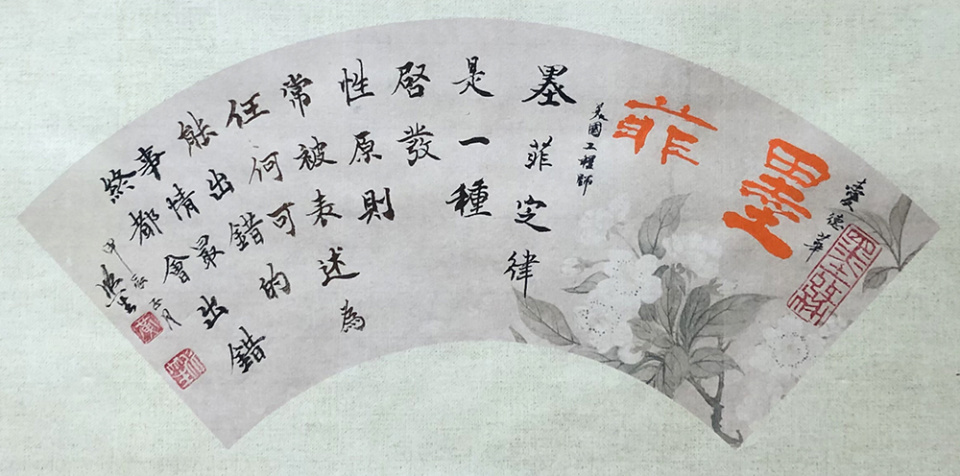 愛德華
墨菲
美國工程師
墨菲定律
是一種
啓發
性原則
常被表述為
任何可
能出錯的
事情最
終都會出錯
甲辰